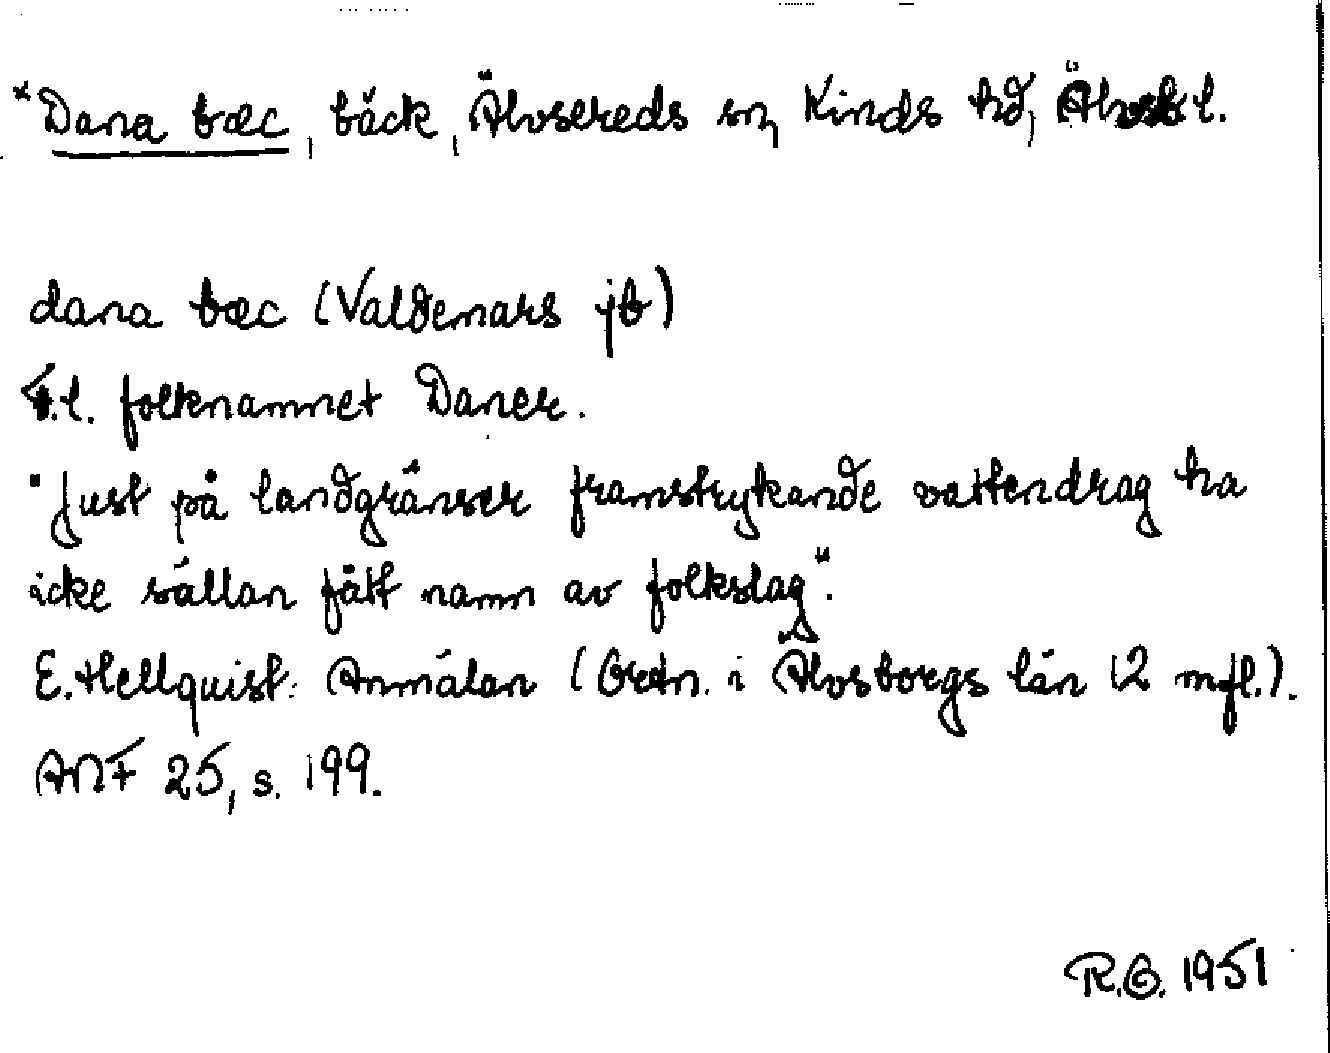 *Dana bæc, bäck, Älvsereds sn, Kinds hd, Älvsb l.
dana bæc (Valdemars jb)
F.l. folknamnet Daner.
"Just på landgränser framstrykande vattendrag ha
icke sällan fått namn av folkslag".
E. Hellquist: Anmälan (Ortn. i Älvsborgs län 12 mfl.).
ANF 25, s. 199.
R.O. 1951